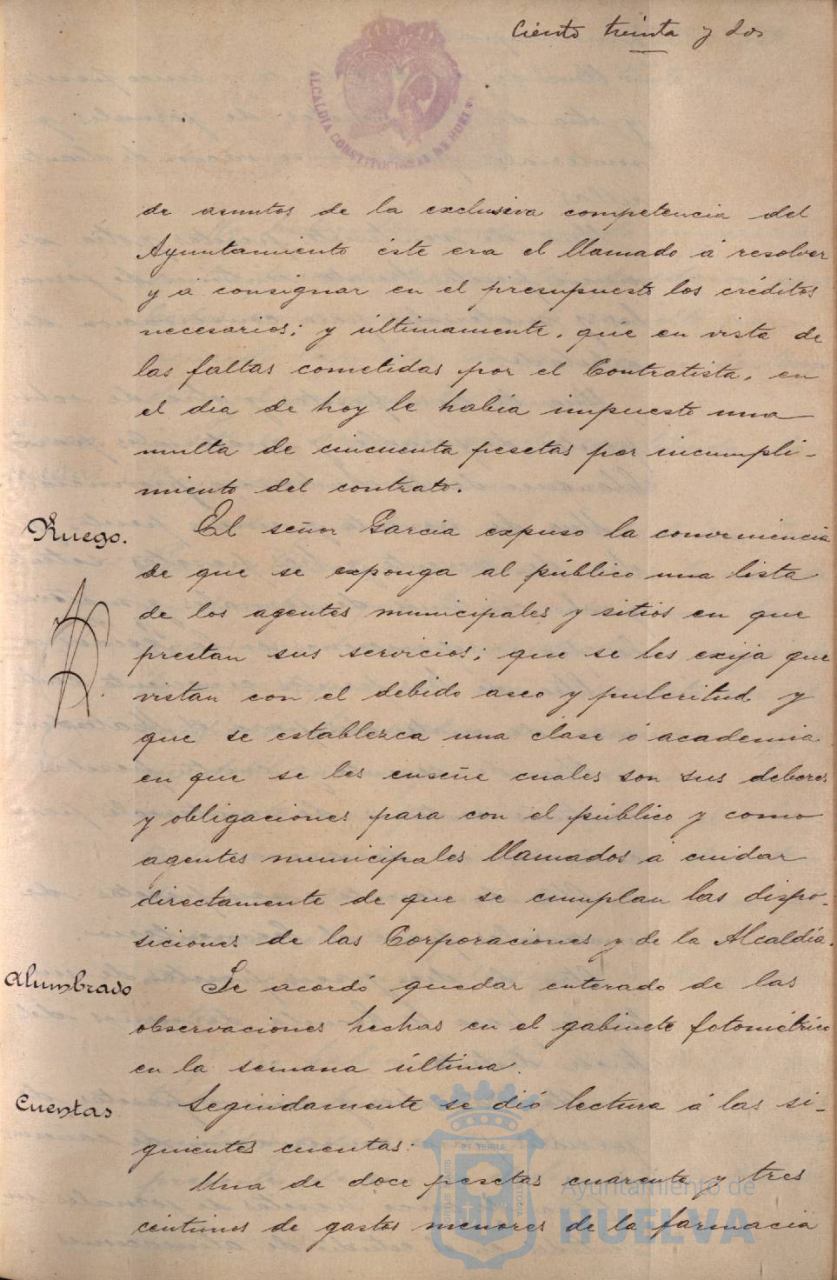 Ciento treinta y dos
ALCALDIA CONSTITUCIONAL DE HUELVA
de asuntos de la exclusiva competencia del
Ayuntamiento éste era el llamado á resolver
y á consignar en el presupuesto los créditos
necesarios; y últimamente, que en vista de
las faltas cometidas por el Contratista, en
el dia de hoy le había impuesto una
multa de cincuenta pesetas por incumpli-
miento del contrato.
Ruego.
El señor García expuso la conveniencia
de que se exponga al público una lista
de los agentes municipales y sitios en que
prestan sus servicios; que se les exija que
vistan con el debido aseo y pulcritud y
que se establezca una clase ó academia
en que se les enseñe cuales son sus deberes
y obligaciones para con el público y como
agentes municipales llamados á cuidar
directamente de que se cumplan las dispo-
siciones de las Corporaciones y de la Alcaldía.
Alumbrado
Se acordó quedar enterado de las
observaciones hechas en el gabinete fotométrico
en la semana última.
Cuentas
Seguidamente se dió lectura á las si-
guientes cuentas:
Una de doce pesetas cuarenta y tres
centimos de gastos menores de la farmacia
Ayuntamiento de
HUELVA